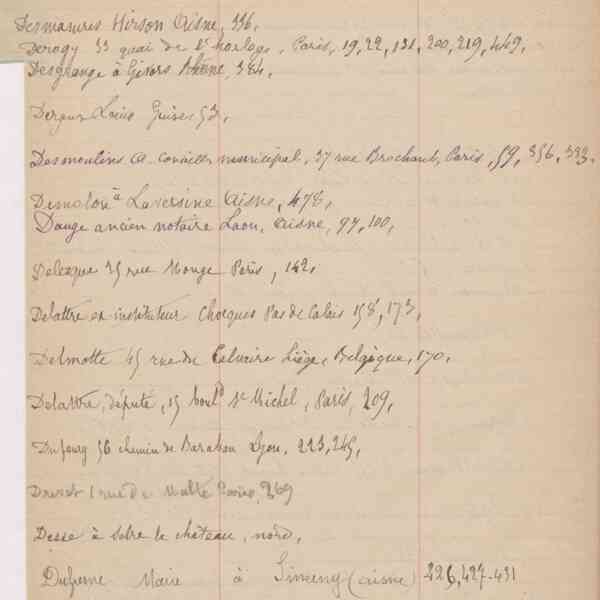 Desmasures Hirson Aisne, 336.
Derogy 33 quai de l'horloge, Paris, 19, 22, 131, 200, 219, 449.
Desgrange à Givors Rhône, 384.
Louis Guise 53.
Desmoulins A. conseiller municipal, 37 rue Brochant, Paris, 59, 356, 333.
à Laversine Aisne, 478.
Dauge ancien notaire Laon, Aisne, 97, 100,
35 rue Monge Paris, 142,
Delattre ex instituteur Chocques Pas de Calais 158, 173,
Delmotte 45 rue du Calvaire Liège, Belgique, 170,
Delattre, député, 15 boul.d St Michel, Paris, 209,
Dufourg 56 chemin de Baraban Lyon, 223, 245,
1 rue de Malte Paris, 269
Desse à Solre le château, nord,
Dufresne Maire à Sinceny (aisne) 426, 427-431